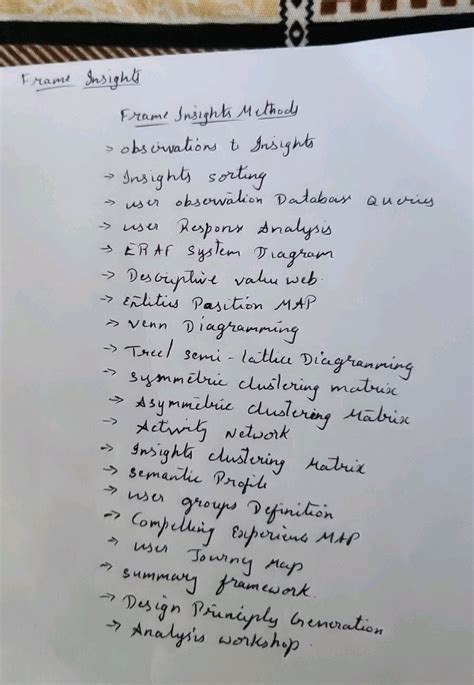 Frame Insights
Frame Insights Methods
→ observations to Insights
→ Insights sorting
→ user observation Database Queries
→ user Respons Analysis
→ ERAF System Diagram
→ Descriptive value web.
→ Entities Position MAP
→ Venn Diagramming
→ Tree/ semi-lattice Diagramming
→ Symmetric clustering matrix
→ Asymmetric clustering Matrix
→ Activity Network
→ Insights clustering Matrix
→ Semantic Profile
→ user groups Definition
→ Compelling Experience MAP
→ user Journy Map
→ Summary framework.
→ Design Principly Generation
→ Analysis workshop.